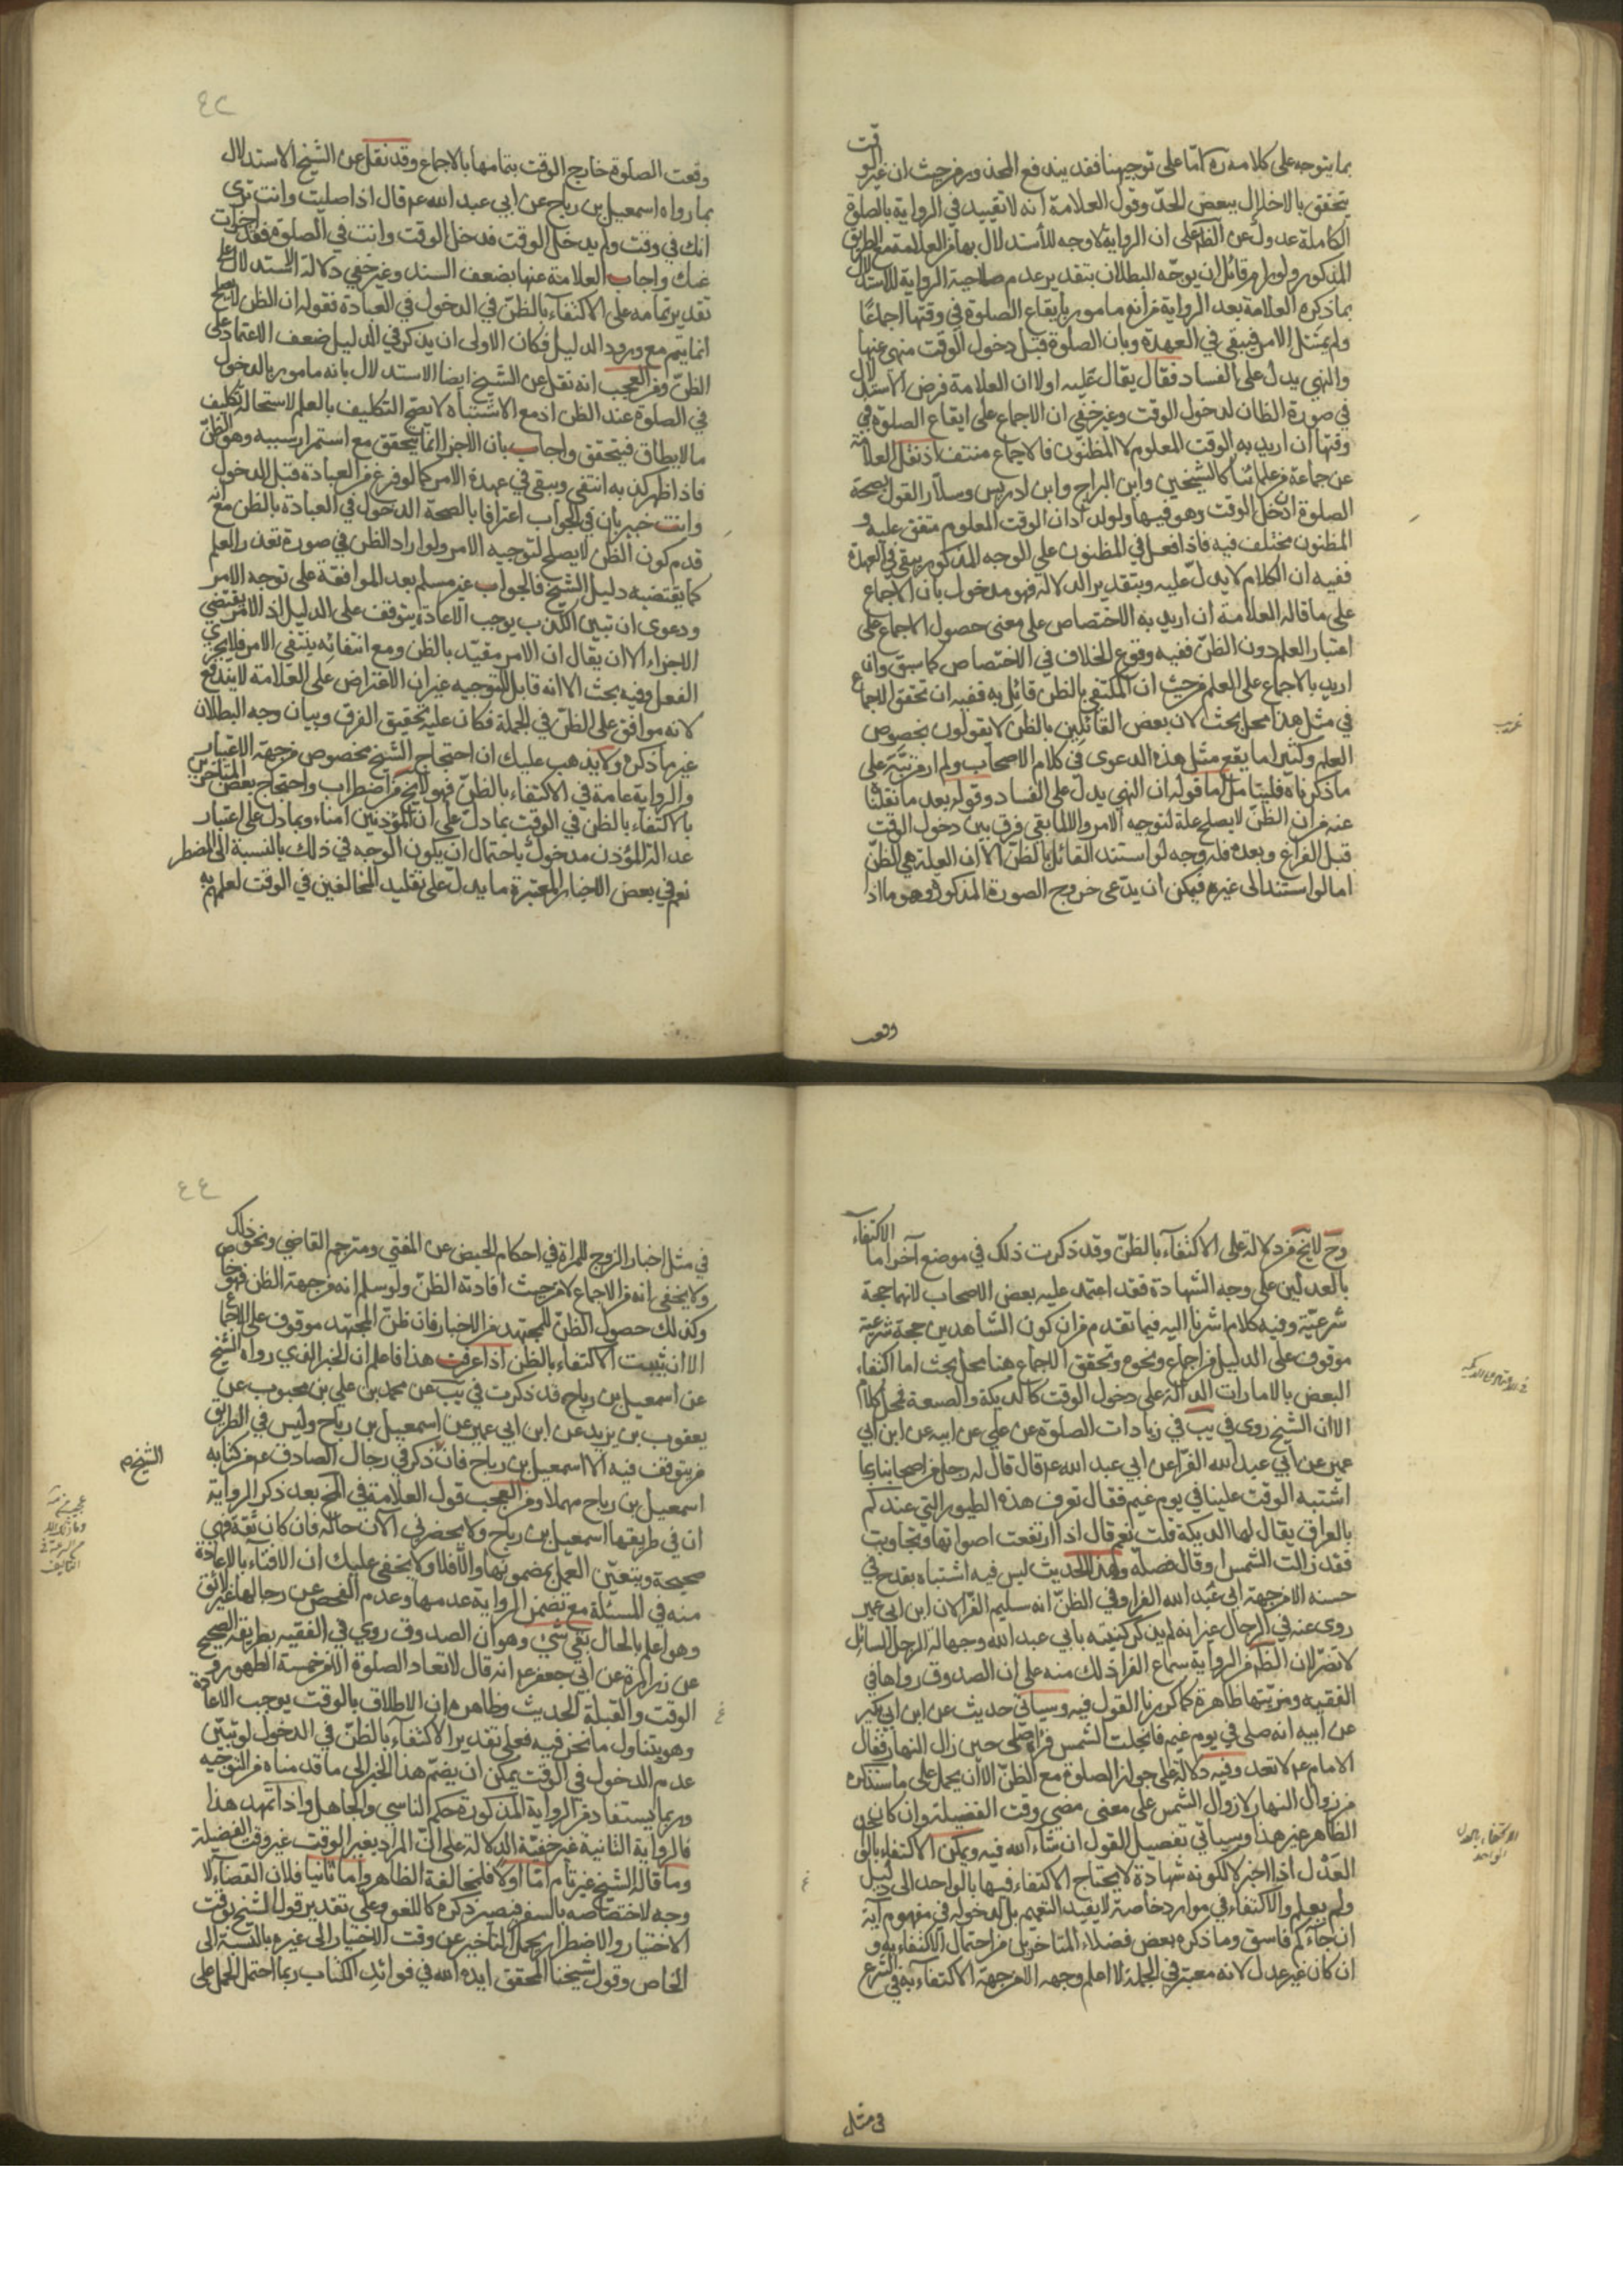 بما يتوجه على كلامه ره امّا على توجيهنا فقد يندفع المحذور من حيث ان غير الوقت
يتحقق بالاخلال ببعض الحدّ وقول العلامة انه لا تقييد في الرواية بالصلوة
الكاملة عدول عن الظم على ان الرواية لا وجه للاستدلال بها من العلامة مع الطريق
المذكور ولو رام قائل ان يوجّه البطلان بتقدير عدم صلاحية الرواية للاستدلال
بما ذكره العلامة بعد الرواية من انه مامور بايقاع الصلوة في وقتها اجماعًا
ولم يمتثل الامر فيبقى في العهدة وبان الصلوة قبل دخول الوقت منهى عنها
والنهي يدل على الفساد فقال يقال عليه اولا ان العلامة فرض الاستدلال
في صورة الظان لدخول الوقت وغير خفي ان الاجماع على ايقاع الصلوة في
وقتها ان اريد به الوقت المعلوم لا المظنون فالاجماع منتف اذ نقل العلامة
عن جماعة من علمائنا كالشيخين وابن البراج وابن ادريس وسلار القول بصحة
الصلوة اذا دخل الوقت وهو فيها ولو اراد ان الوقت المعلوم متفق عليه و
المظنون مختلف فيه فاذا فعل في المظنون على الوجه المذكور يبقى في العهدة
ففيه ان الكلام لا يدلّ عليه وبتقدير الدلالة فهو مدخول بان الاجماع
على ما قاله العلامة ان اريد به الاختصاص على معنى حصول الاجماع على
اعتبار العلم دون الظنّ ففيه وقوع الخلاف في الاختصاص كما سبق وان
اريد بالاجماع على العلم من حيث ان المكتفي بالظن قائل به ففيه ان تحقق الاجماع
في مثل هذا محل بحث لان بعض القائلين بالظن لا يقولون بخصوص
العلم وكثيرا ما يقع مثل هذه الدعوى في كلام الاصحاب ولم ار من نبّه على
ما ذكرناه فليتامل اما قوله ان النهي يدلّ على الفساد وقوله بعد ما نقلنا
عنه من ان الظنّ لا يصلح علة لتوجيه الامر والا لما بقي فرق بين دخول الوقت
قبل الفراغ وبعده فله وجه لو استند القائل بالظنّ الا ان العلة هي الظنّ
اما لو استند الى غيره فيمكن ان يدّعى خروج الصورة المذكورة وهو ما اذا
غريب
وقعت
٤٣
وقعت الصلوة خارج الوقت بتمامها بالاجماع وقد نقل عن الشيخ الاستدلال
بما رواه اسمعيل بن رياح عن ابي عبد الله عم قال اذا صليت وانت ترى
انك في وقت ولم يدخل الوقت فدخل الوقت وانت في الصلوة فقد اجزات
عنك واجاب العلامة عنها بضعف السند وغير خفي دلالة الاستدلال على
تقدير تمامه على الاكتفاء بالظنّ في الدخول في العبادة فقوله ان الظن لا يصلح
انما يتم مع ورود الدليل فكان الاولى ان يذكر في الدليل ضعف الاعتماد على
الظنّ ومن العجب انه نقل عن الشيخ ايضا الاستدلال بانه مامور بالدخول
في الصلوة عند الظن اذ مع الاشتباه لا يصحّ التكليف بالعلم لاستحالة تكليف
ما لا يطاق فيتحقق واجاب بان الاجزا انما يتحقق مع استمرار سببه وهو الظنّ
فاذا ظهر كذبه انتفى ويبقى في عهدة الامر كما لو فرغ من العبادة قبل الدخول
وانت خبير بان في الجواب اعترافا بالصحة الدخول في العبادة بالظن مع انه
قدم كون الظن لا يصلح لتوجيه الامر ولو اراد الظن في صورة تعذر العلم
كما يقتضيه دليل الشيخ فالجواب غير مسلم بعد الموافقة على توجه الامر
ودعوى ان تبين الكذب يوجب الاعادة يتوقف على الدليل اذ الامر يقتضي
الاجزاء الا ان يقال ان الامر مقيّد بالظن ومع انتفائه ينتفى الامر فلا يجزي
الفعل وفيه بحث الا انه قابل للتوجيه غير ان الاعتراض على العلامة لا يندفع
لانه موافق على الظنّ في الجملة فكان عليه تحقيق الفرق وبيان وجه البطلان
غير ما ذكره ولا يذهب عليك ان احتجاج الشيخ مخصوص من جهة الاعتبار
والرواية عامة في الاكتفاء بالظنّ فهو لا يخ من اضطراب واحتجاج بعض المتاخرين
بالاكتفاء بالظن في الوقت بما دلّ على ان المؤذنين امناء وبما دل على اعتبار
عدالة المؤذن مدخول باحتمال ان يكون الوجه في ذلك بالنسبة الى المضطر
نعم في بعض الاخبار المعتبرة ما يدلّ على تقليد المخالفين في الوقت لعلمهم به
وح لا يخ من دلالة على الاكتفاء بالظنّ وقد ذكرت ذلك في موضع آخر اما الاكتفاء
بالعدلين على وجه الشهادة فقد اعتمد عليه بعض الاصحاب لانهما حجة
شرعيّة وفيه كلام اشرنا اليه فيما تقدم من ان كون الشاهدين حجة شرعية
موقوف على الدليل من اجماع ونحوه وتحقق الاجماع هنا محل بحث اما اكتفاء
البعض بالامارات الدالة على دخول الوقت كالديكة والصنعة فمحل كلام
الا ان الشيخ روى في يب في زيادات الصلوة عن علي عن ابيه عن ابن ابي
عمير عن ابي عبد الله الفرّا عن ابي عبد الله عم قال قال له رجل من اصحابنا ربما
اشتبه الوقت علينا في يوم غيم فقال تعرف هذه الطيور التي عندكم
بالعراق يقال لها الديكة قلت نعم قال اذا ارتفعت اصواتها وتجاوبت
فقد زالت الشمس او قال فصلّه وهذا الحديث ليس فيه اشتباه يقدح في
حسنه الا من جهة ابي عبد الله الفرا وفي الظنّ انه سليم الفرّا لان ابن ابي عمير
روى عنه في الرجال غير انه لم يذكر كنيته بابي عبد الله وجهالة الرجل السائل
لا تضر لان الظ من الرواية سماع الفرا ذلك منه على ان الصدوق رواها في
الفقيه ومزيّتها ظاهرة كما كررنا القول فيه وسياتي حديث عن ابن ابي بكير
عن ابيه انه صلى في يوم غيم فانجلت الشمس فراى صلى حين زال النهار فقال
الامام عم لا تعد وفيه دلالة على جواز الصلوة مع الظنّ الا ان يحمل على ما ستذكره
من زوال النهار لا زوال الشمس على معنى مضى وقت الفضيلة وان كان
الظاهر غير هذا وسياتي تفصيل القول ان شاء الله فيه ويمكن الاكتفاء
العدل اذا اخبر لا لكونه شهادة لا يحتاج الاكتفاء فيها بالواحد الى دليل
ولم يعلم والاكتفاء في موارد خاصة لا يفيد التعميم بل لدخوله في مفهوم آية
ان جاءكم فاسق وما ذكره بعض فضلاء المتاخرين من احتمال الاكتفاء به و
ان كان غير عدل لانه معتبر في الجملة لا اعلم وجهه الا من جهة الاكتفاء به في الشرع
الاكتفاء بالعدل
الواحد
في مثل
٤٤
في مثل اخبار الزوج للمراة في احكام الحيض عن المفتي ومترجم القاضي ونحو ذلك
ولا يخفى انه من الاجماع لا من حيث افادته الظنّ ولو سلم انه من جهة الظن فهو خاص
وكذلك حصول الظنّ للمجتهد من الاخبار فان ظنّ المجتهد موقوف على الاجماع
الا ان يثبت الاكتفاء بالظن اذا عرفت هذا فاعلم ان الخبر الذي رواه الشيخ
عن اسمعيل بن رياح قد ذكرت في يب عن محمد بن علي بن محبوب عن
يعقوب بن يزيد عن ابن ابي عمير عن اسمعيل بن رياح وليس في الطريق
من يتوقف فيه الا اسمعيل بن رياح فان ذكر في رجال الصادق عم من كتابه
الشيخ ره
اسمعيل بن رياح مهملا ومن العجب قول العلامة في المخ بعد ذكر الرواية
ان في طريقها اسمعيل بن رياح ولا يحضرني الآن حاله فان كان ثقة فهي
صحيحة ويتعيّن العمل بمضمونها والا فلا ولا يخفى عليك ان الافتاء بالاعادة
منه في المسئلة مع تضمن الرواية عدمها وعدم الفحص عن رجالها غير لائق
وهو اعلم بالحال بقي شئ وهو ان الصدوق روي في الفقيه بطريقه الصحيح
عن زرارة عن ابي جعفر عم انه قال لا تعاد الصلوة الا من خمسة الطهور و
الوقت والقبلة الحديث وظاهره ان الاطلاق بالوقت يوجب الاعادة
وهو يتناول ما نحن فيه فعلى تقدير الاكتفاء بالظنّ في الدخول لو تبيّن
عدم الدخول في الوقت يمكن ان يضمّ هذا الخبر الى ما قدمناه من التوجيه
وربما يستفاد من الرواية المذكورة حكم الناسي والجاهل واذا تمهد هذا
فالرواية الثانية غير خفيّة الدلالة على انّ المراد بغير الوقت غير وقت الفضيلة
وما قاله الشيخ غير تام امّا اولا فلمخالفة الظاهر واما ثانيا فلان القضاء لا
وجه لاختصاصه بالسفر فيصير ذكره كاللغو وعلى تقدير قول الشيخ بوقت
الاختيار والاضطرار يحمل التاخير عن وقت الاختيار الى غيره بالنسبة الى
الخاص وقول شيخنا المحقق ايده الله في فوائد الكتاب ربما احتمل الحمل على